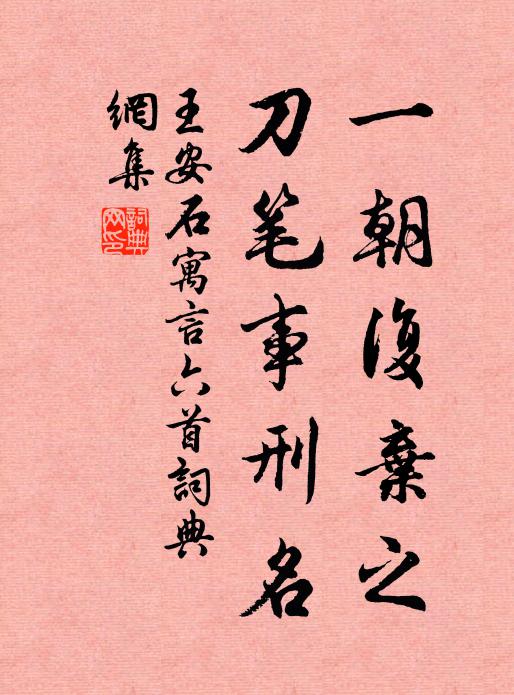 一朝復棄之
刀笔事刑名
王安石寓言六首詞典
網集
詞典
网印